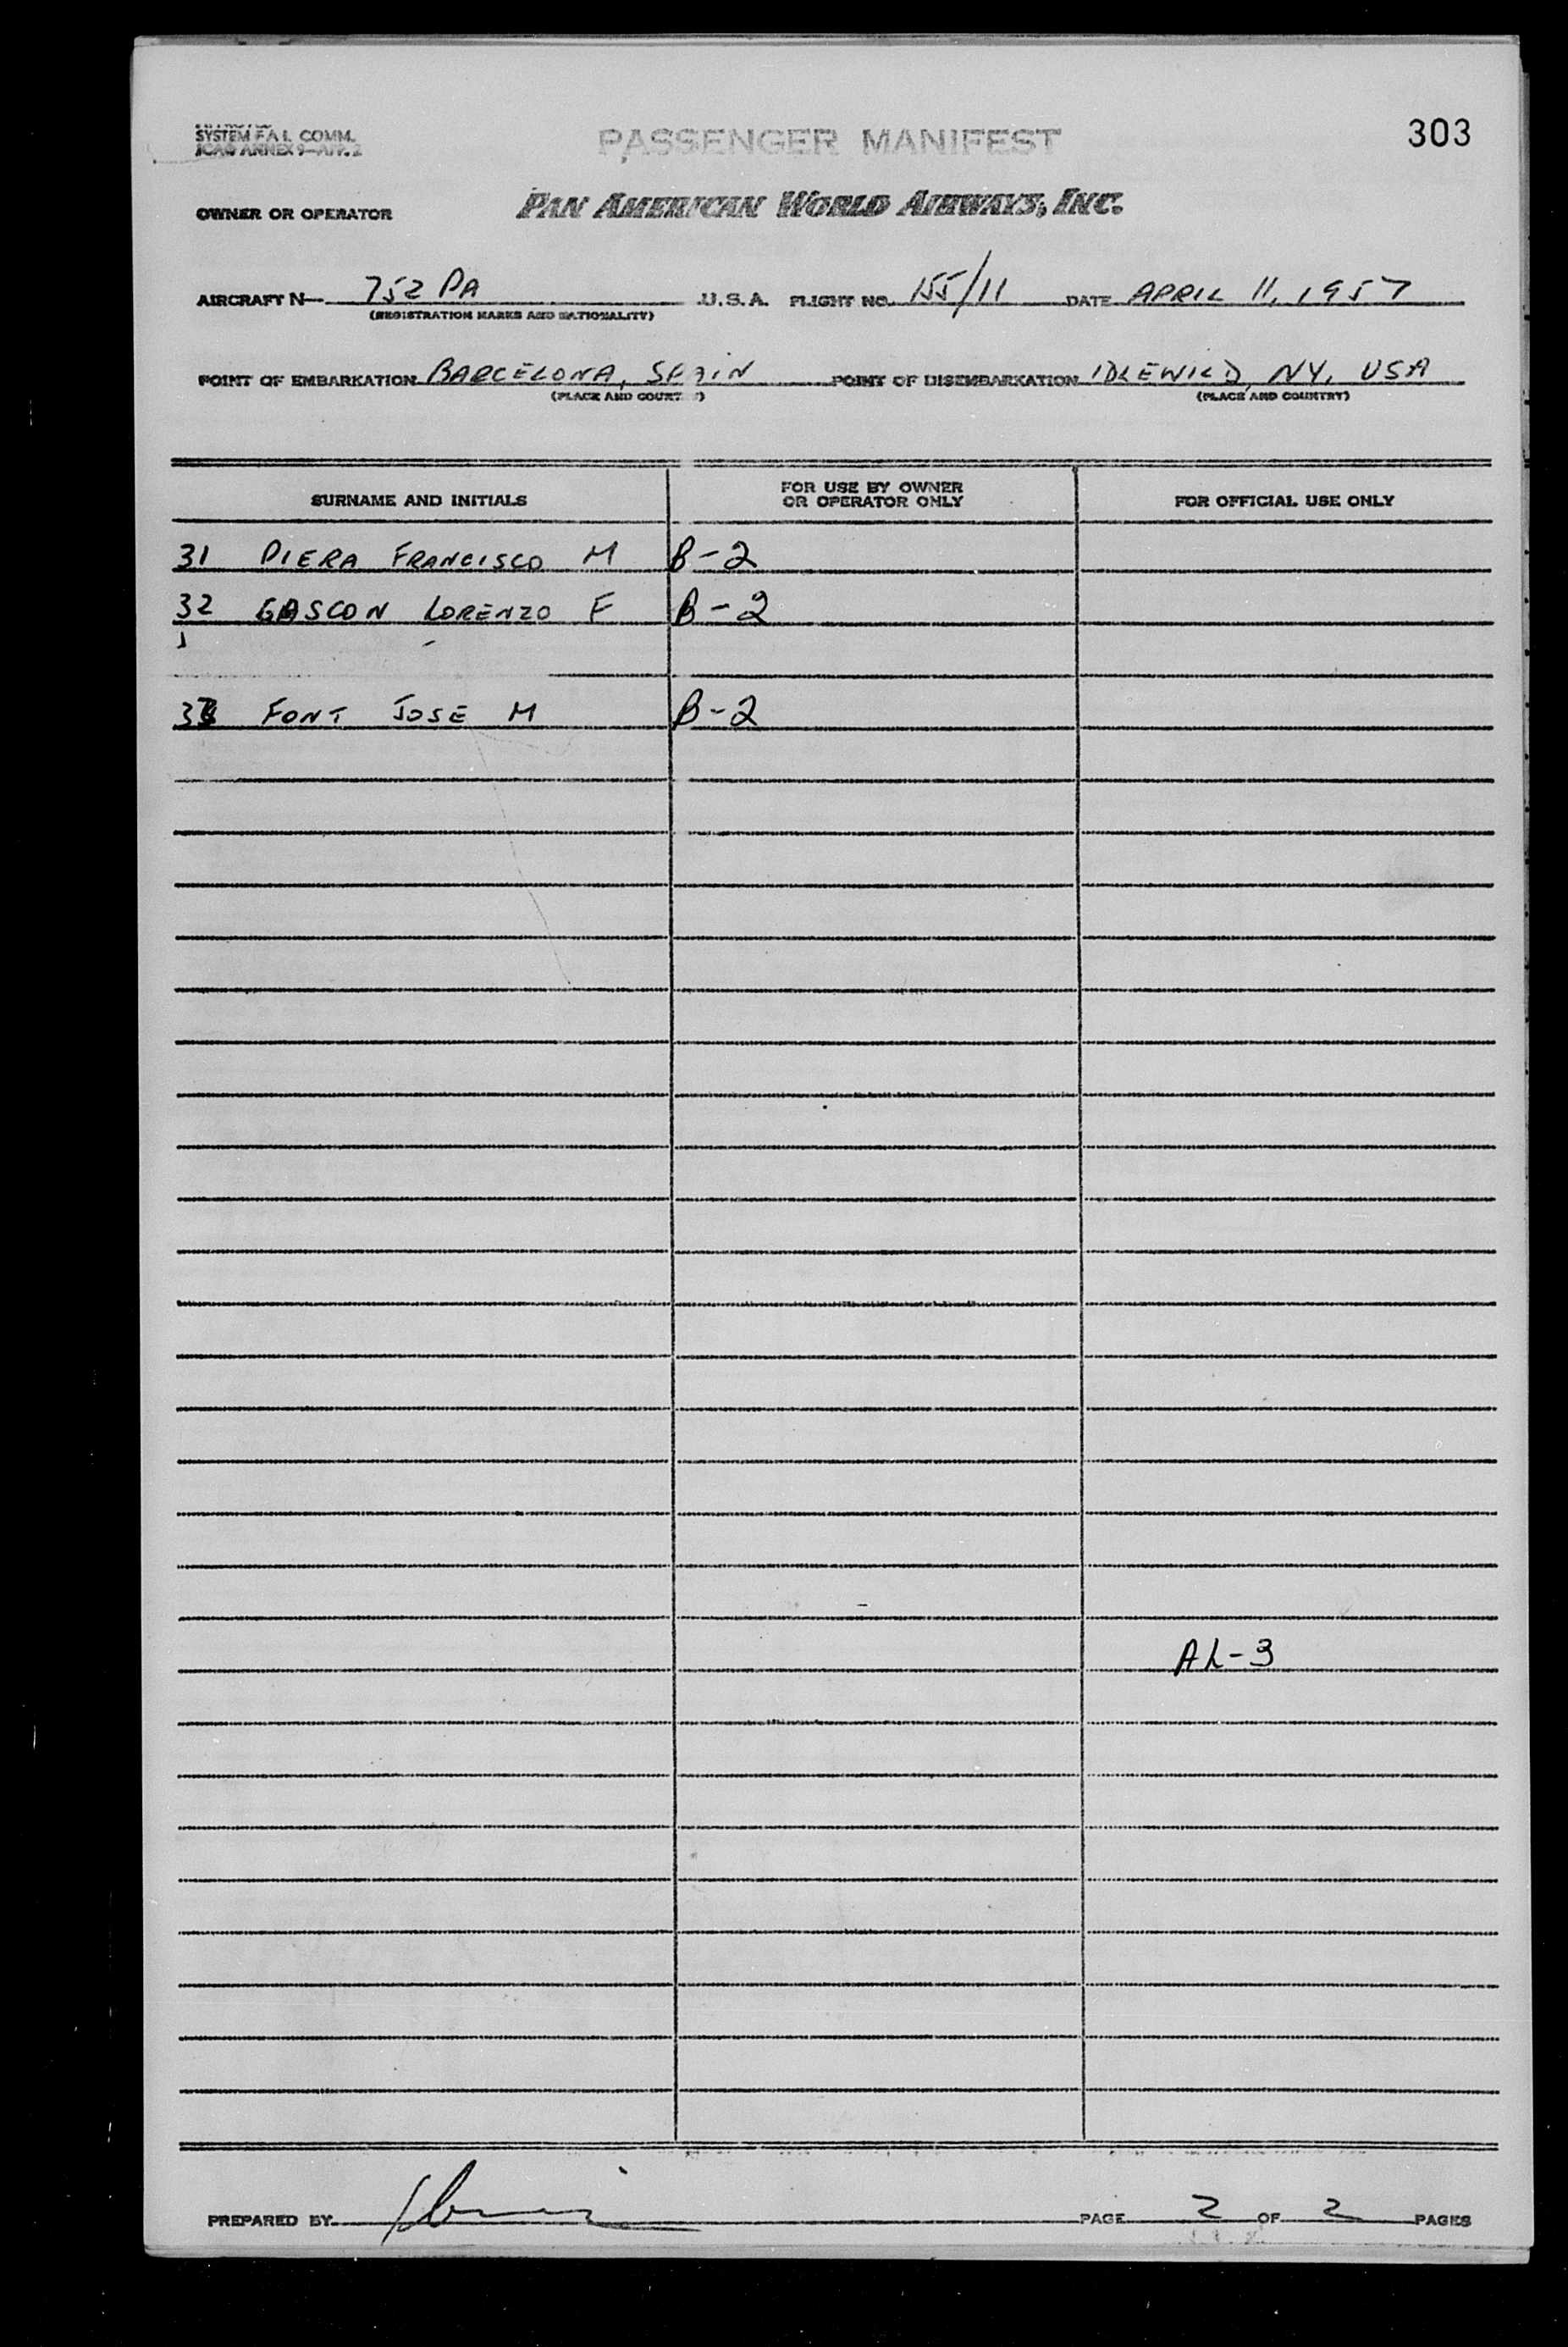 303
SYSTEM F.A.L. COMM.
ICAO ANNEX 9—APP. 2
PASSENGER MANIFEST
OWNER OR OPERATOR PAN AMERICAN WORLD AIRWAYS, INC.
AIRCRAFT N— 752 PA U.S.A. FLIGHT NO. 155/11 DATE APRIL 11, 1957
(REGISTRATION MARKS AND NATIONALITY)
POINT OF EMBARKATION BARCELONA, SPAIN POINT OF DISEMBARKATION IDLEWILD, NY, USA
(PLACE AND COUNTRY) (PLACE AND COUNTRY)
SURNAME AND INITIALS FOR USE BY OWNER OR OPERATOR ONLY FOR OFFICIAL USE ONLY
31 PIERA FRANCISCO M B-2
32 GASCON LORENZO F B-2
33 FONT JOSE M B-2
AL-3
PREPARED BY PAGE 2 OF 2 PAGES